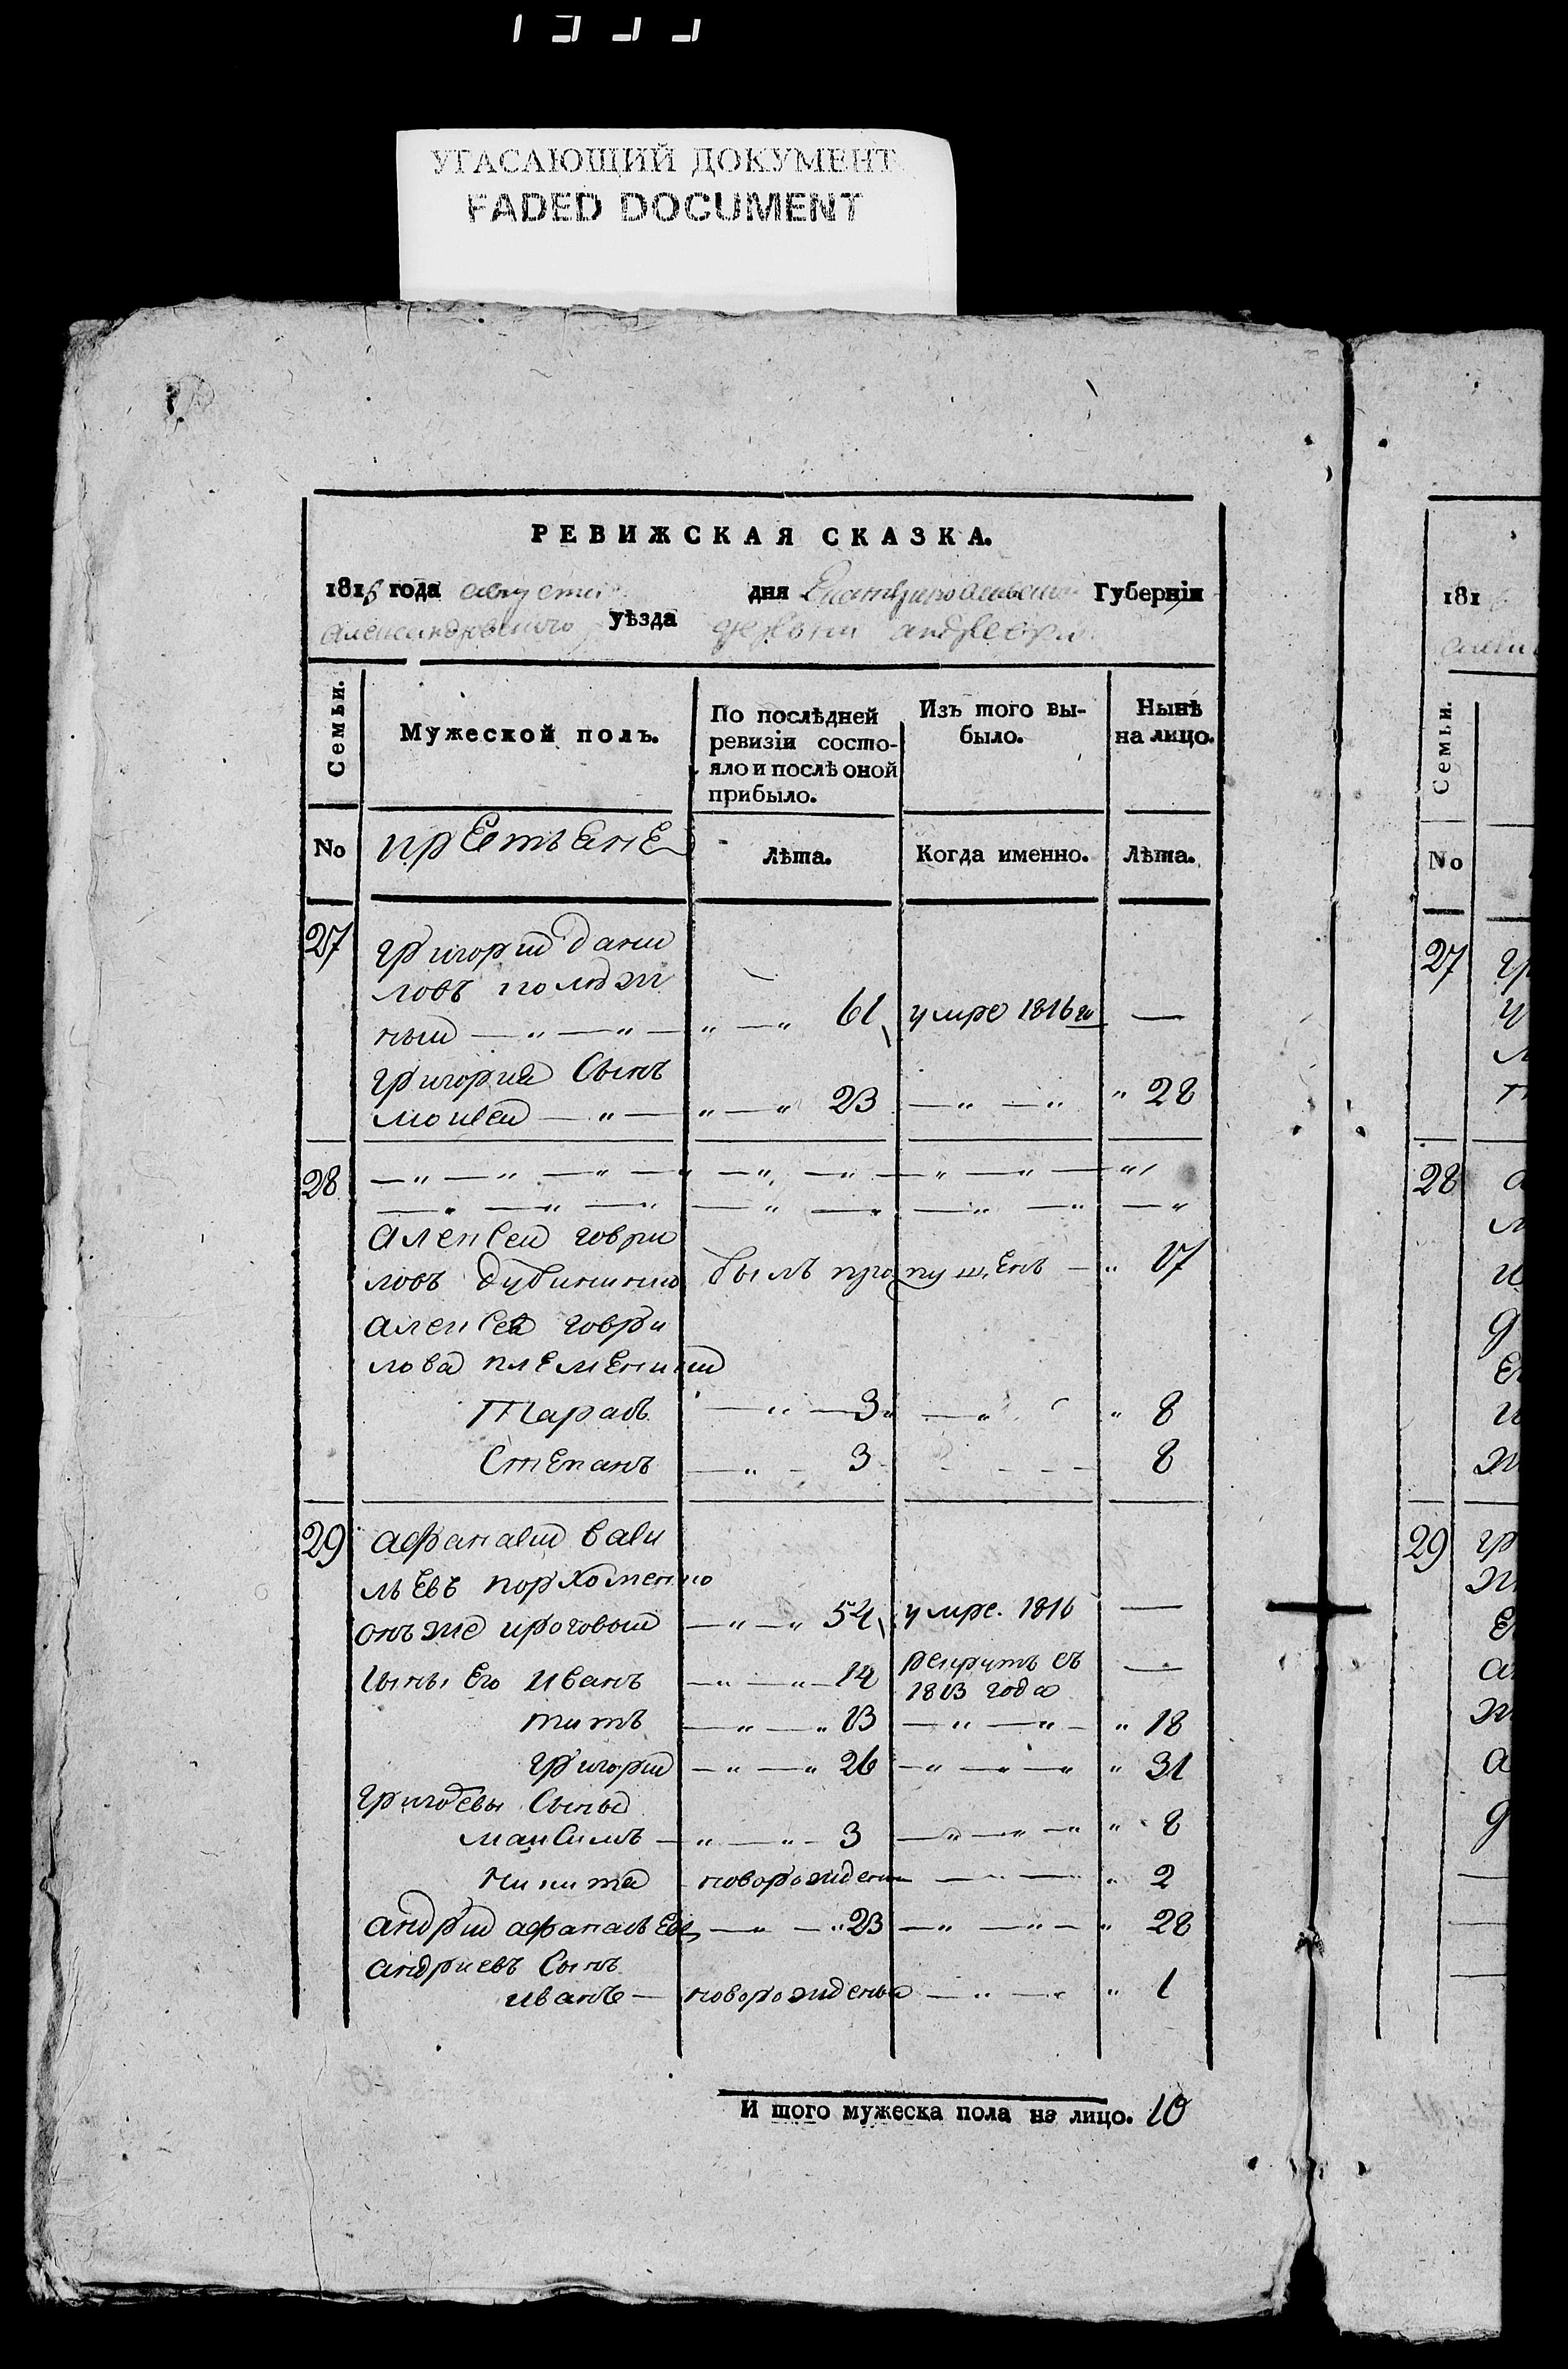 УГАСАЮЩИЙ ДОКУМЕНТ
FADED DOCUMENT
РЕВИЖСКАЯ СКАЗКА.
1816 года августа дня Екатеринославской Губерніи
Александровского уѣзда деревни андреевки
Семьи.
Мужеской полъ.
По послѣдней ревизіи состо-
яло и послѣ оной
прибыло.
Изъ того вы-
было.
Нынѣ
на лицо.
No крестьяне Лѣта. Когда именно. Лѣта.
27 григорий дани
ловъ
ный — „ — „ — „ — „ 61 умре 1816го —
григория Сынъ
моисей — „ — „ — „ 23 — „ — „ „ 28
28
алексей говри
ловъ дубининко былъ пропущенъ — „ 17
алексея говри
лова племеники
Тарасъ — „ — 3 „ — „ „ 8
Степанъ — „ - 3 - - - - 8
29 афанасий васи
льевъ порхоменко
онъ же — „ — „ 54 умре. 1816 —
сыны Его иванъ — „ — „ — 14 рекрутъ съ —
1813 года
титъ — „ — „ 13 — „ — „ - „ 18
григорий — „ — „ 26 — „ — „ — „ „ 31
григоревы Сыны
максимъ — „ — „ - 3 — „ — „ — „ „ 8
никита новорожденъ — „ — „ 2
андрий афанасьевъ — „ — „ 23 — „ — „ — „ 28
андриевъ Сынъ
иванъ — новорожденый — „ — „ „ 1
И того мужеска пола на лицо. 10
181
Семьи.
No
27
28
29